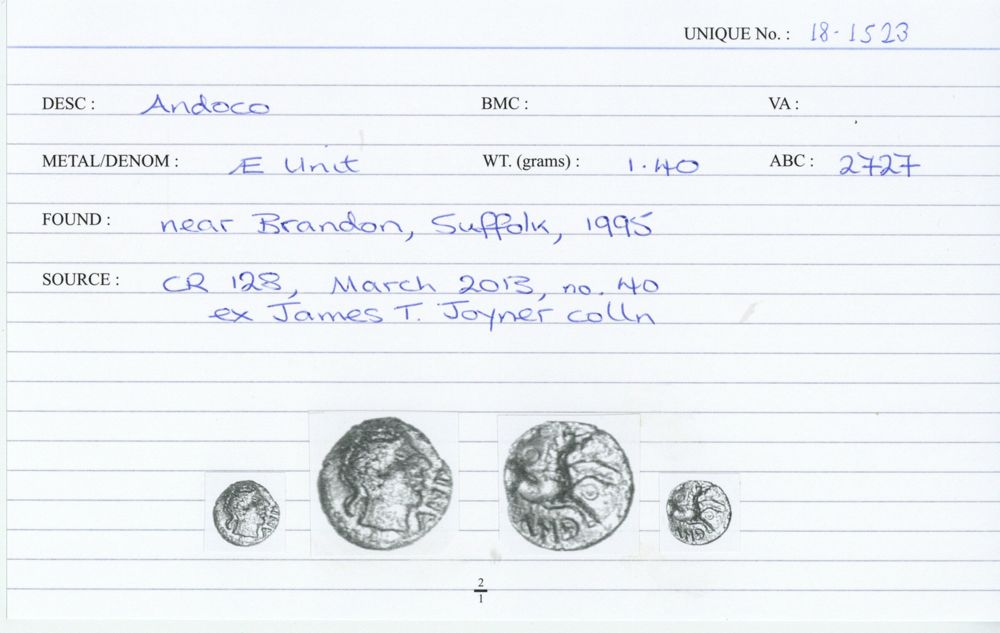 UNIQUE No. : 18-1523
DESC : Andoco BMC : VA :
METAL/DENOM : Æ Unit WT. (grams) : 1.40 ABC : 2727
FOUND : near Brandon, Suffolk, 1995
SOURCE : CR 128, March 2013, no. 40
ex James T. Joyner colln
2
1